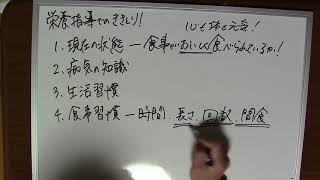 栄養指導でのききとり!
心も体も元気!
1. 現在の状態 ― 食事がおいしく食べられているか!
2. 病気の知識
3. 生活習慣
4. 食事習慣 ― 時間、長さ、回数、間食